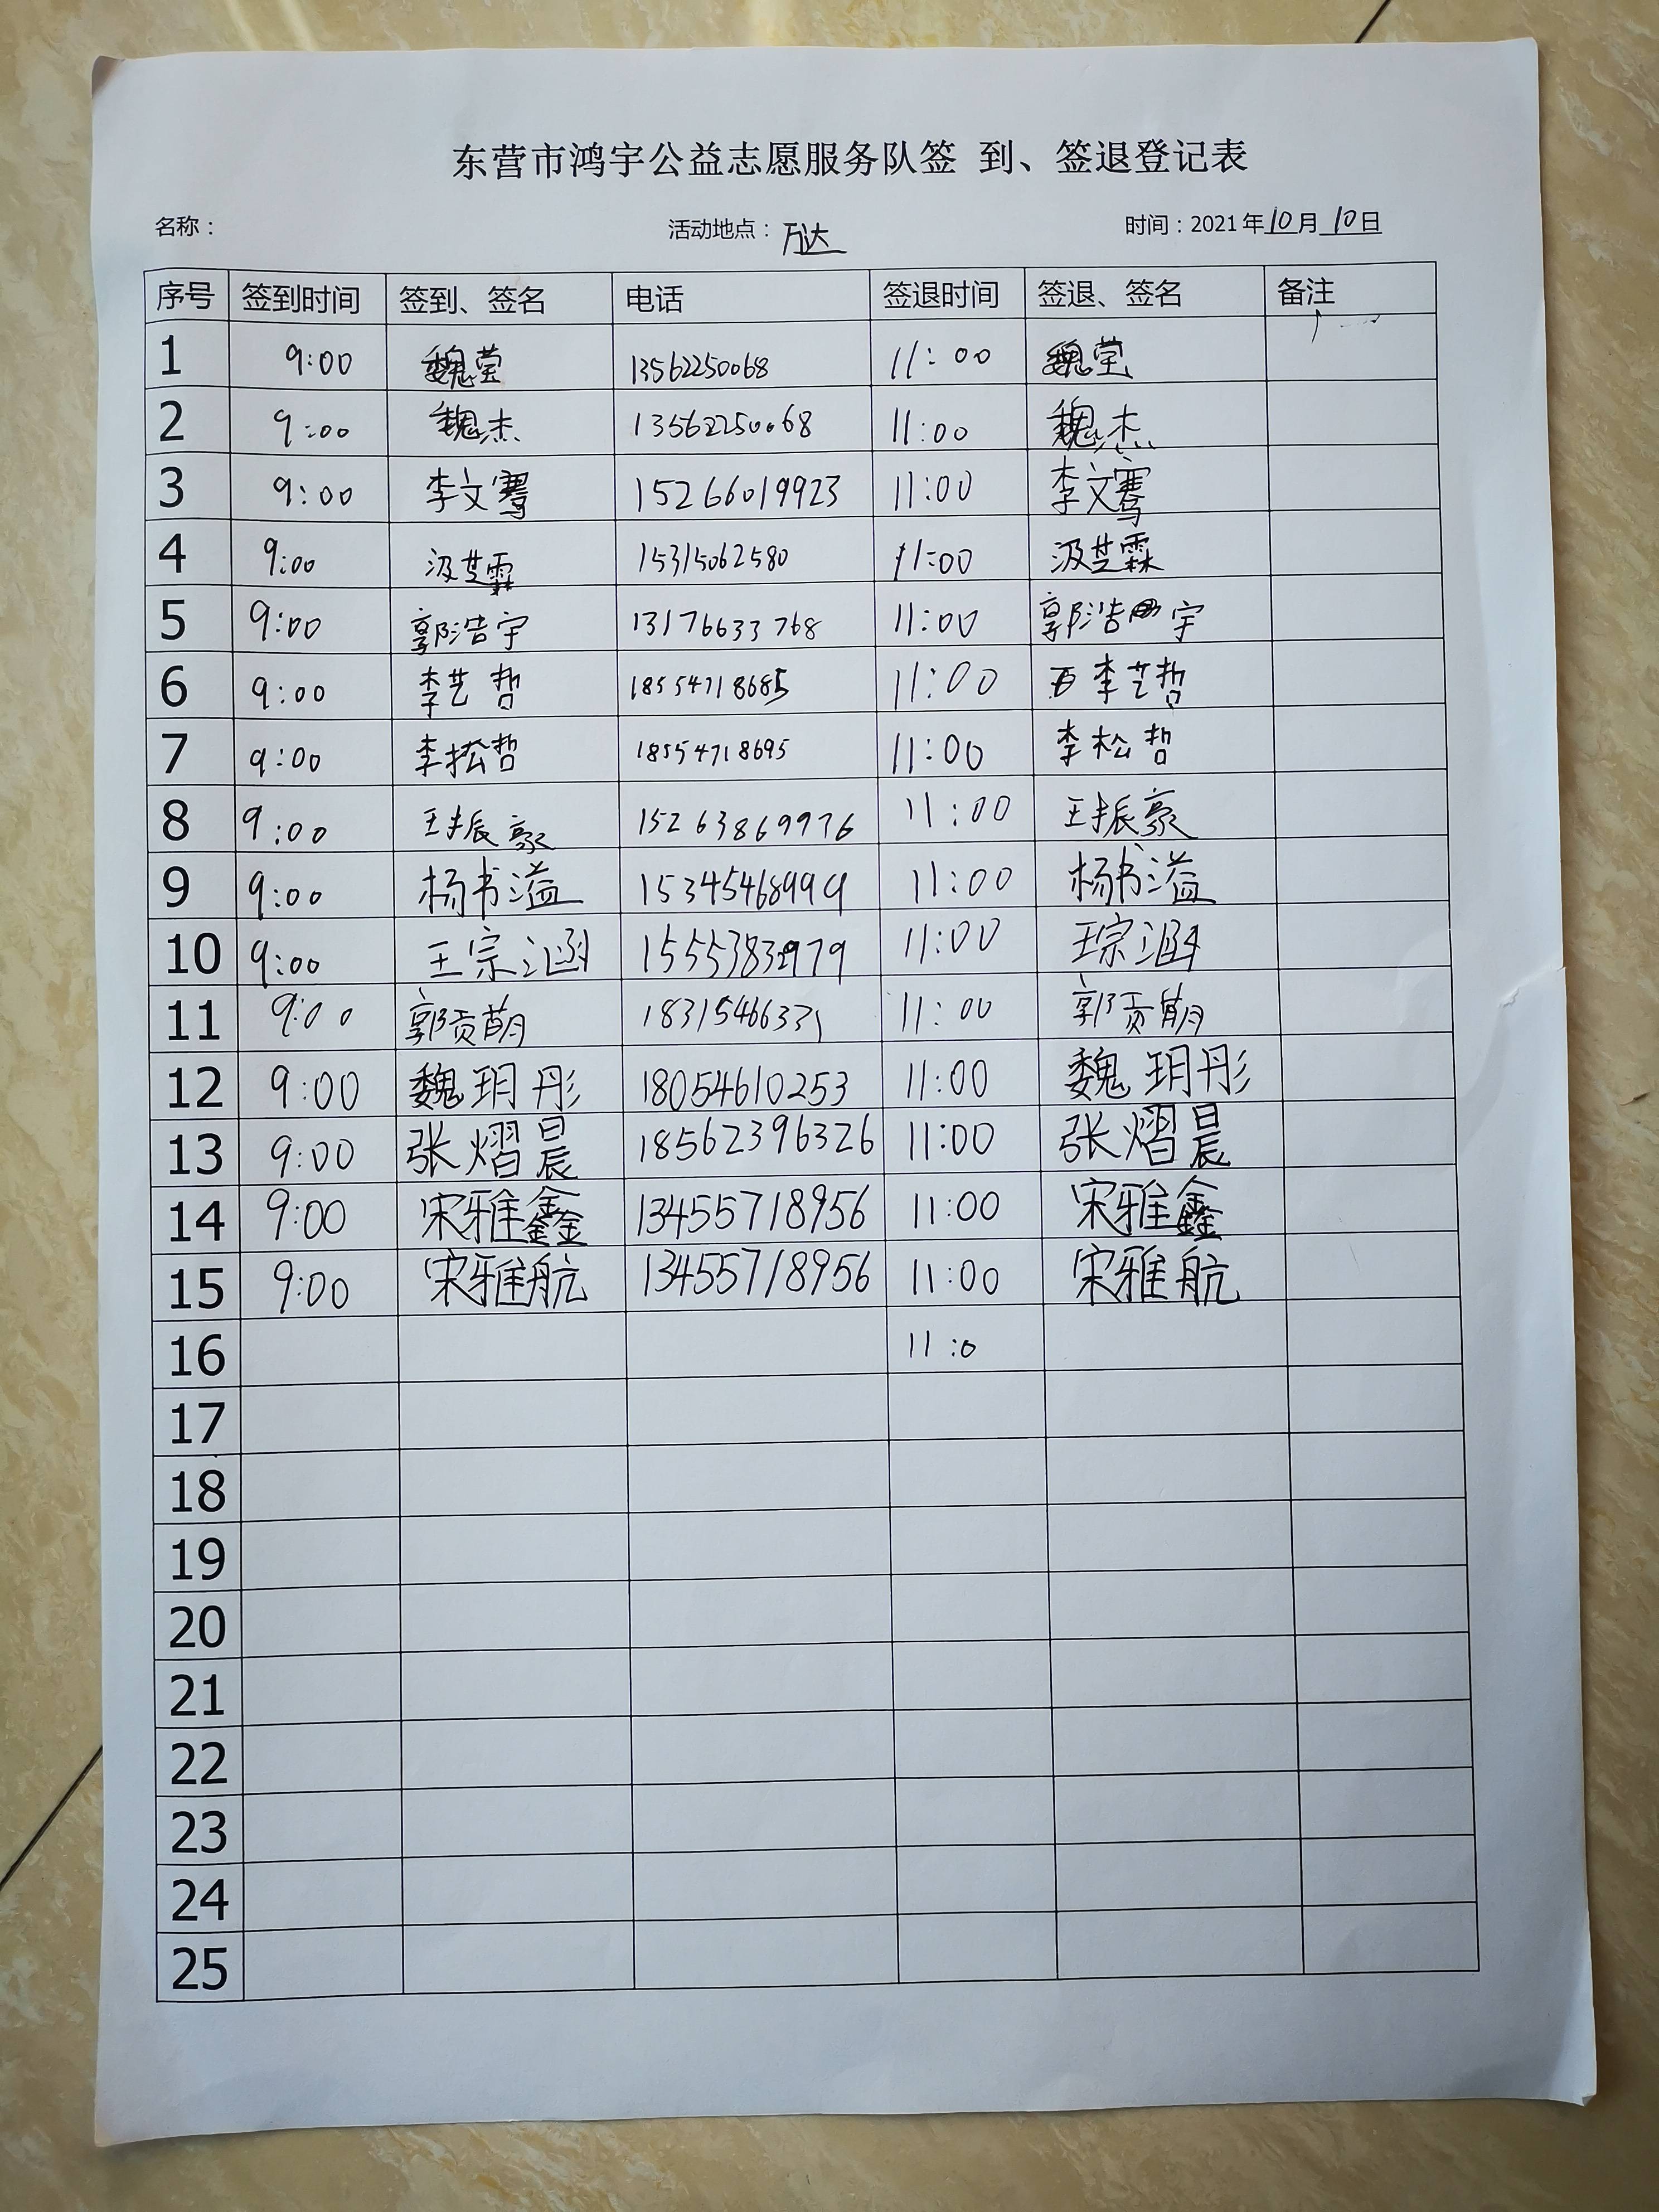 东营市鸿宇公益志愿服务队签 到、签退登记表
名称： 活动地点：万达 时间：2021年10月10日
序号 签到时间 签到、签名 电话 签退时间 签退、签名 备注
1 9:00 魏莹 13562250068 11:00 魏莹
2 9:00 魏杰 13562250068 11:00 魏杰
3 9:00 李文骞 15266019923 11:00 李文骞
4 9:00 汲芝霖 15315062580 11:00 汲芝霖
5 9:00 郭浩宇 13176633768 11:00 郭浩宇
6 9:00 李艺哲 18554718685 11:00 李艺哲
7 9:00 李松哲 18554718695 11:00 李松哲
8 9:00 王振豪 15263869976 11:00 王振豪
9 9:00 杨书溢 15345468999 11:00 杨书溢
10 9:00 王宗涵 15553832979 11:00 王宗涵
11 9:00 郭贡萌 18315466331 11:00 郭贡萌
12 9:00 魏玥彤 18054610253 11:00 魏玥彤
13 9:00 张熠晨 18562396326 11:00 张熠晨
14 9:00 宋雅鑫 13455718956 11:00 宋雅鑫
15 9:00 宋雅航 13455718956 11:00 宋雅航
16 11:0
17
18
19
20
21
22
23
24
25